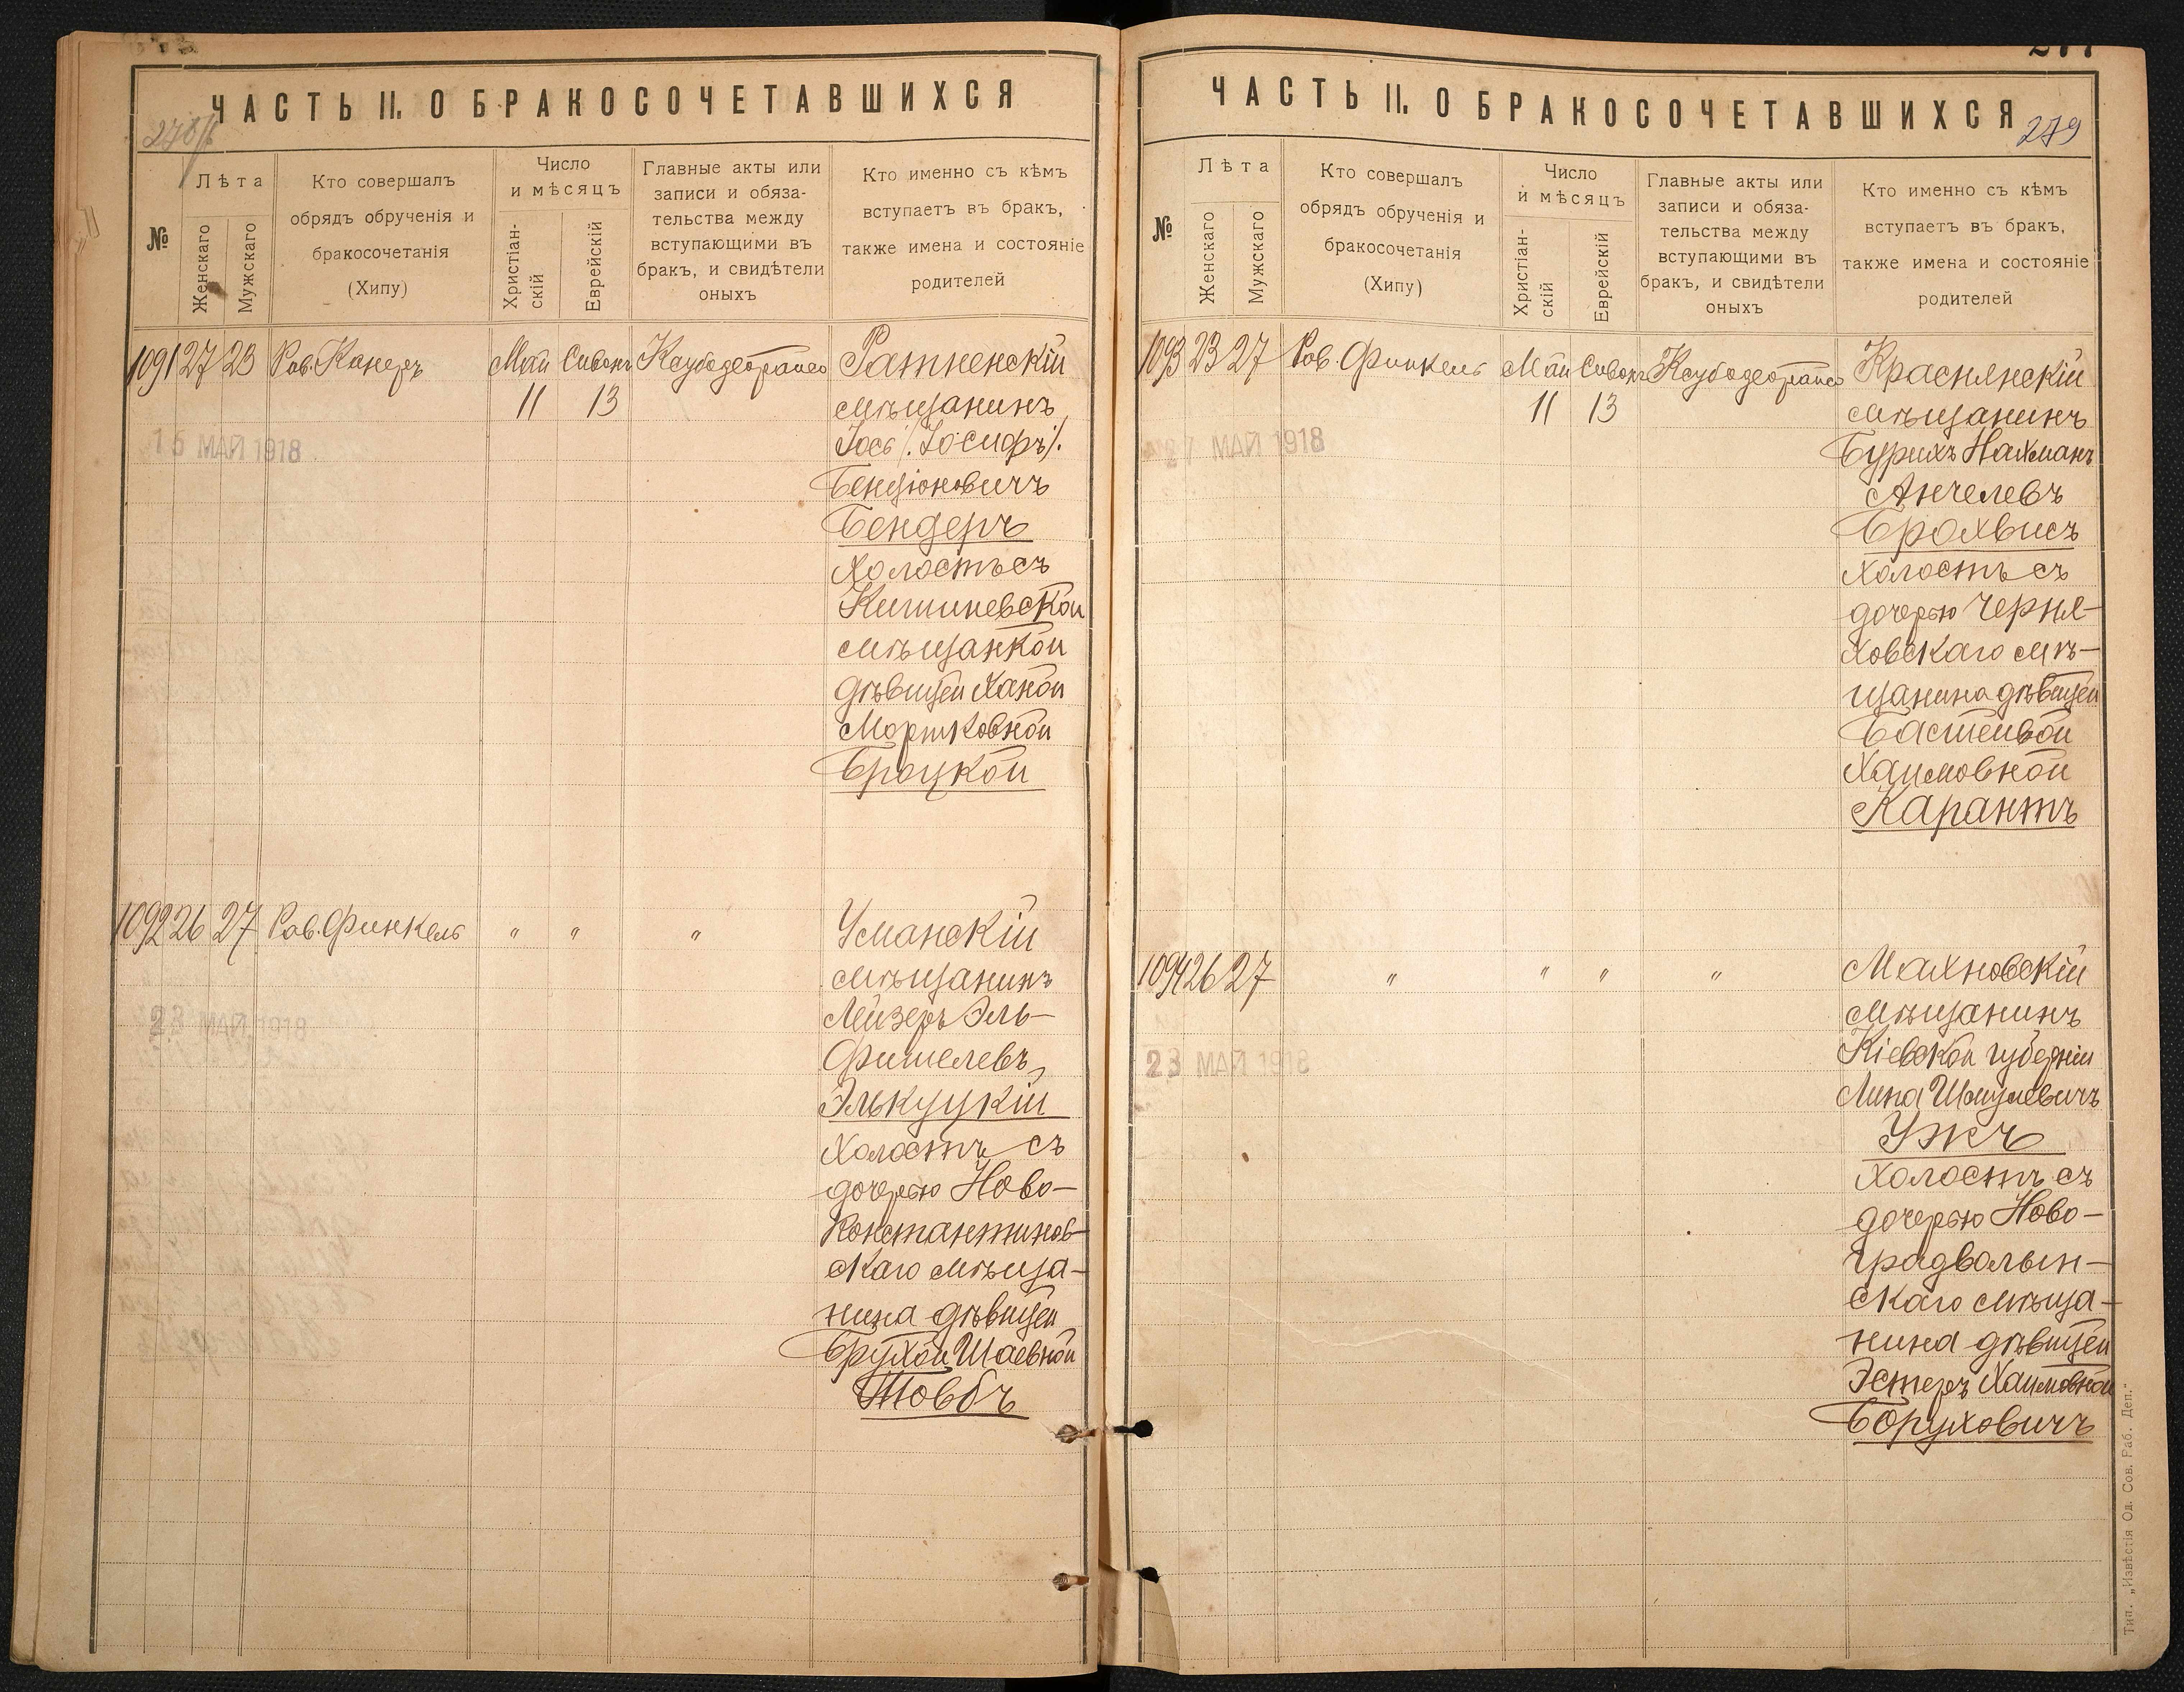 ЧАСТЬ II. О БРАКОСОЧЕТАВШИХСЯ
№
Лѣта
Женскаго
Мужскаго
Кто совершалъ
обрядъ обрученія и
бракосочетанія
(Хипу)
Число
и мѣсяцъ
Христіан-
скій
Еврейскій
Главные акты или
записи и обяза-
тельства между
вступающими въ
бракъ, и свидѣтели
оныхъ
Кто именно съ кѣмъ
вступаетъ въ бракъ,
также имена и состояніе
родителей
1091 27 23 Рав. Канеръ Май Сивонъ
11 13
15 МАЙ 1918
Ратненскій
мѣщанинъ
Іось /.Іосифъ/.
Бенціоновичъ
Бендеръ
холостъ съ
Кишиневской
мѣщанкой
дѣвицей Ханой
Моршковной
Броцкой
1092 26 27 Рав. Финкель " " "
23 МАЙ 1918
Уманскій
мѣщанинъ
Лейзеръ Эль-
Фишелевъ
Элькуцкій
холостъ съ
дочерью Ново-
Константинов-
скаго мѣща-
нина дѣвицей
Брухой Шаевной
Товбъ
277
ЧАСТЬ II. О БРАКОСОЧЕТАВШИХСЯ
279
№
Лѣта
Женскаго
Мужскаго
Кто совершалъ
обрядъ обрученія и
бракосочетанія
(Хипу)
Число
и мѣсяцъ
Христіан-
скій
Еврейскій
Главные акты или
записи и обяза-
тельства между
вступающими въ
бракъ, и свидѣтели
оныхъ
Кто именно съ кѣмъ
вступаетъ въ бракъ,
также имена и состояніе
родителей
1093 23 27 Рав. Финкель Май Сивонъ
11 13
27 МАЙ 1918
Краснянскій
мѣщанинъ
Бурихъ Нахманъ
Анчелевъ
Брохвисъ
холостъ съ
дочерью Черня-
ховскаго мѣ-
щанина дѣвицей
Бастейвой
Хаимовной
Карантъ
1094 26 27 " " " "
23 МАЙ 1918
Махновскій
мѣщанинъ
Кіевской губерніи
Липа Шмулевичъ
Ужъ
холостъ съ
дочерью Ново-
градволын-
скаго мѣща-
нина дѣвицей
Эстеръ Хаимовной
Боруховичъ
Тип. „Извѣстія Од. Сов. Раб. Деп."